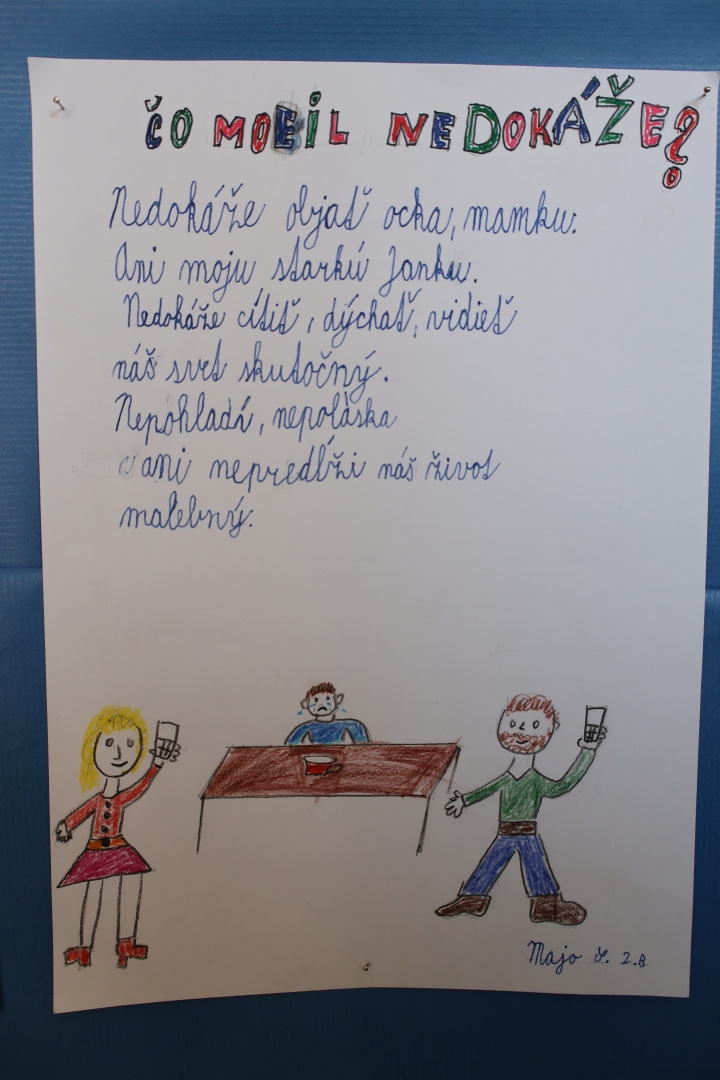 ČO MOBIL NEDOKÁŽE?
Nedokáže objať ocka, mamku.
Ani moju starkú Janku.
Nedokáže cítiť, dýchať, vidieť
náš svet skutočný.
Nepohladí, nepoláska
ani nepredĺži náš život
malebný.
Majo Š. 2.B